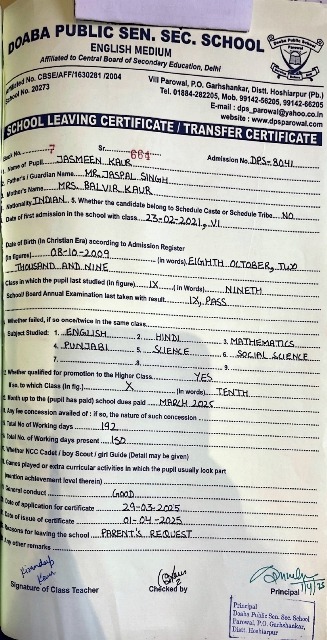 DOABA PUBLIC SEN. SEC. SCHOOL
ENGLISH MEDIUM
Affiliated to Central Board of Secondary Education, Delhi
Affiliated No. CBSE/AFF/1630281 /2004
School No. 20273
Vill Parowal, P.O. Garhshankar, Distt. Hoshiarpur (Pb.)
Tel. 01884-282205, Mob. 99142-56205, 99142-66205
E-mail : dps_parowal@yahoo.co.in
website : www.dpsparowal.com
SCHOOL LEAVING CERTIFICATE / TRANSFER CERTIFICATE
Book No. 7 Sr. 661 Admission No. DPS-8041
Name of Pupil JASMEEN KAUR
Father's / Guardian Name MR. JASPAL SINGH
Mother's Name MRS. BALVIR KAUR
Nationality INDIAN 5. Whether the candidate belong to Schedule Caste or Schedule Tribe NO
Date of first admission in the school with class 23-02-2021, VI
Date of Birth (In Christian Era) according to Admission Register
(In figures) 08-10-2009 (in words) EIGHTH OCTOBER, TWO
THOUSAND AND NINE
Class in which the pupil last studied (in figure) IX (in Words) NINETH
School/ Board Annual Examination last taken with result IX, PASS
Whether failed, if so once/twice in the same class
Subject Studied: 1. ENGLISH 2. HINDI 3. MATHEMATICS
4. PUNJABI 5. SCIENCE 6. SOCIAL SCIENCE
7. 8. 9.
Whether qualified for promotion to the Higher Class YES
If so, to which Class (in fig.) X (in words) TENTH
Month up to the (pupil has paid) school dues paid MARCH 2025
Any fee concession availed of : if so, the nature of such concession
Total No of Working days 192
Total No. of Working days present 150
Whether NCC Cadet / boy Scout / girl Guide (Detail may be given)
Games played or extra curricular activities in which the pupil usually look part
(mention achievement level therein)
General conduct GOOD
Date of application for certificate 29-03-2025
Date of issue of certificate 01-04-2025
Reasons for leaving the school PARENT'S REQUEST
Any other remarks
Kirandeep
Kaur
Signature of Class Teacher Checked by Principal 1/4/25
Principal
Doaba Public Sen. Sec. School
Parowal, P.O. Garhshankar,
Distt. Hoshiarpur